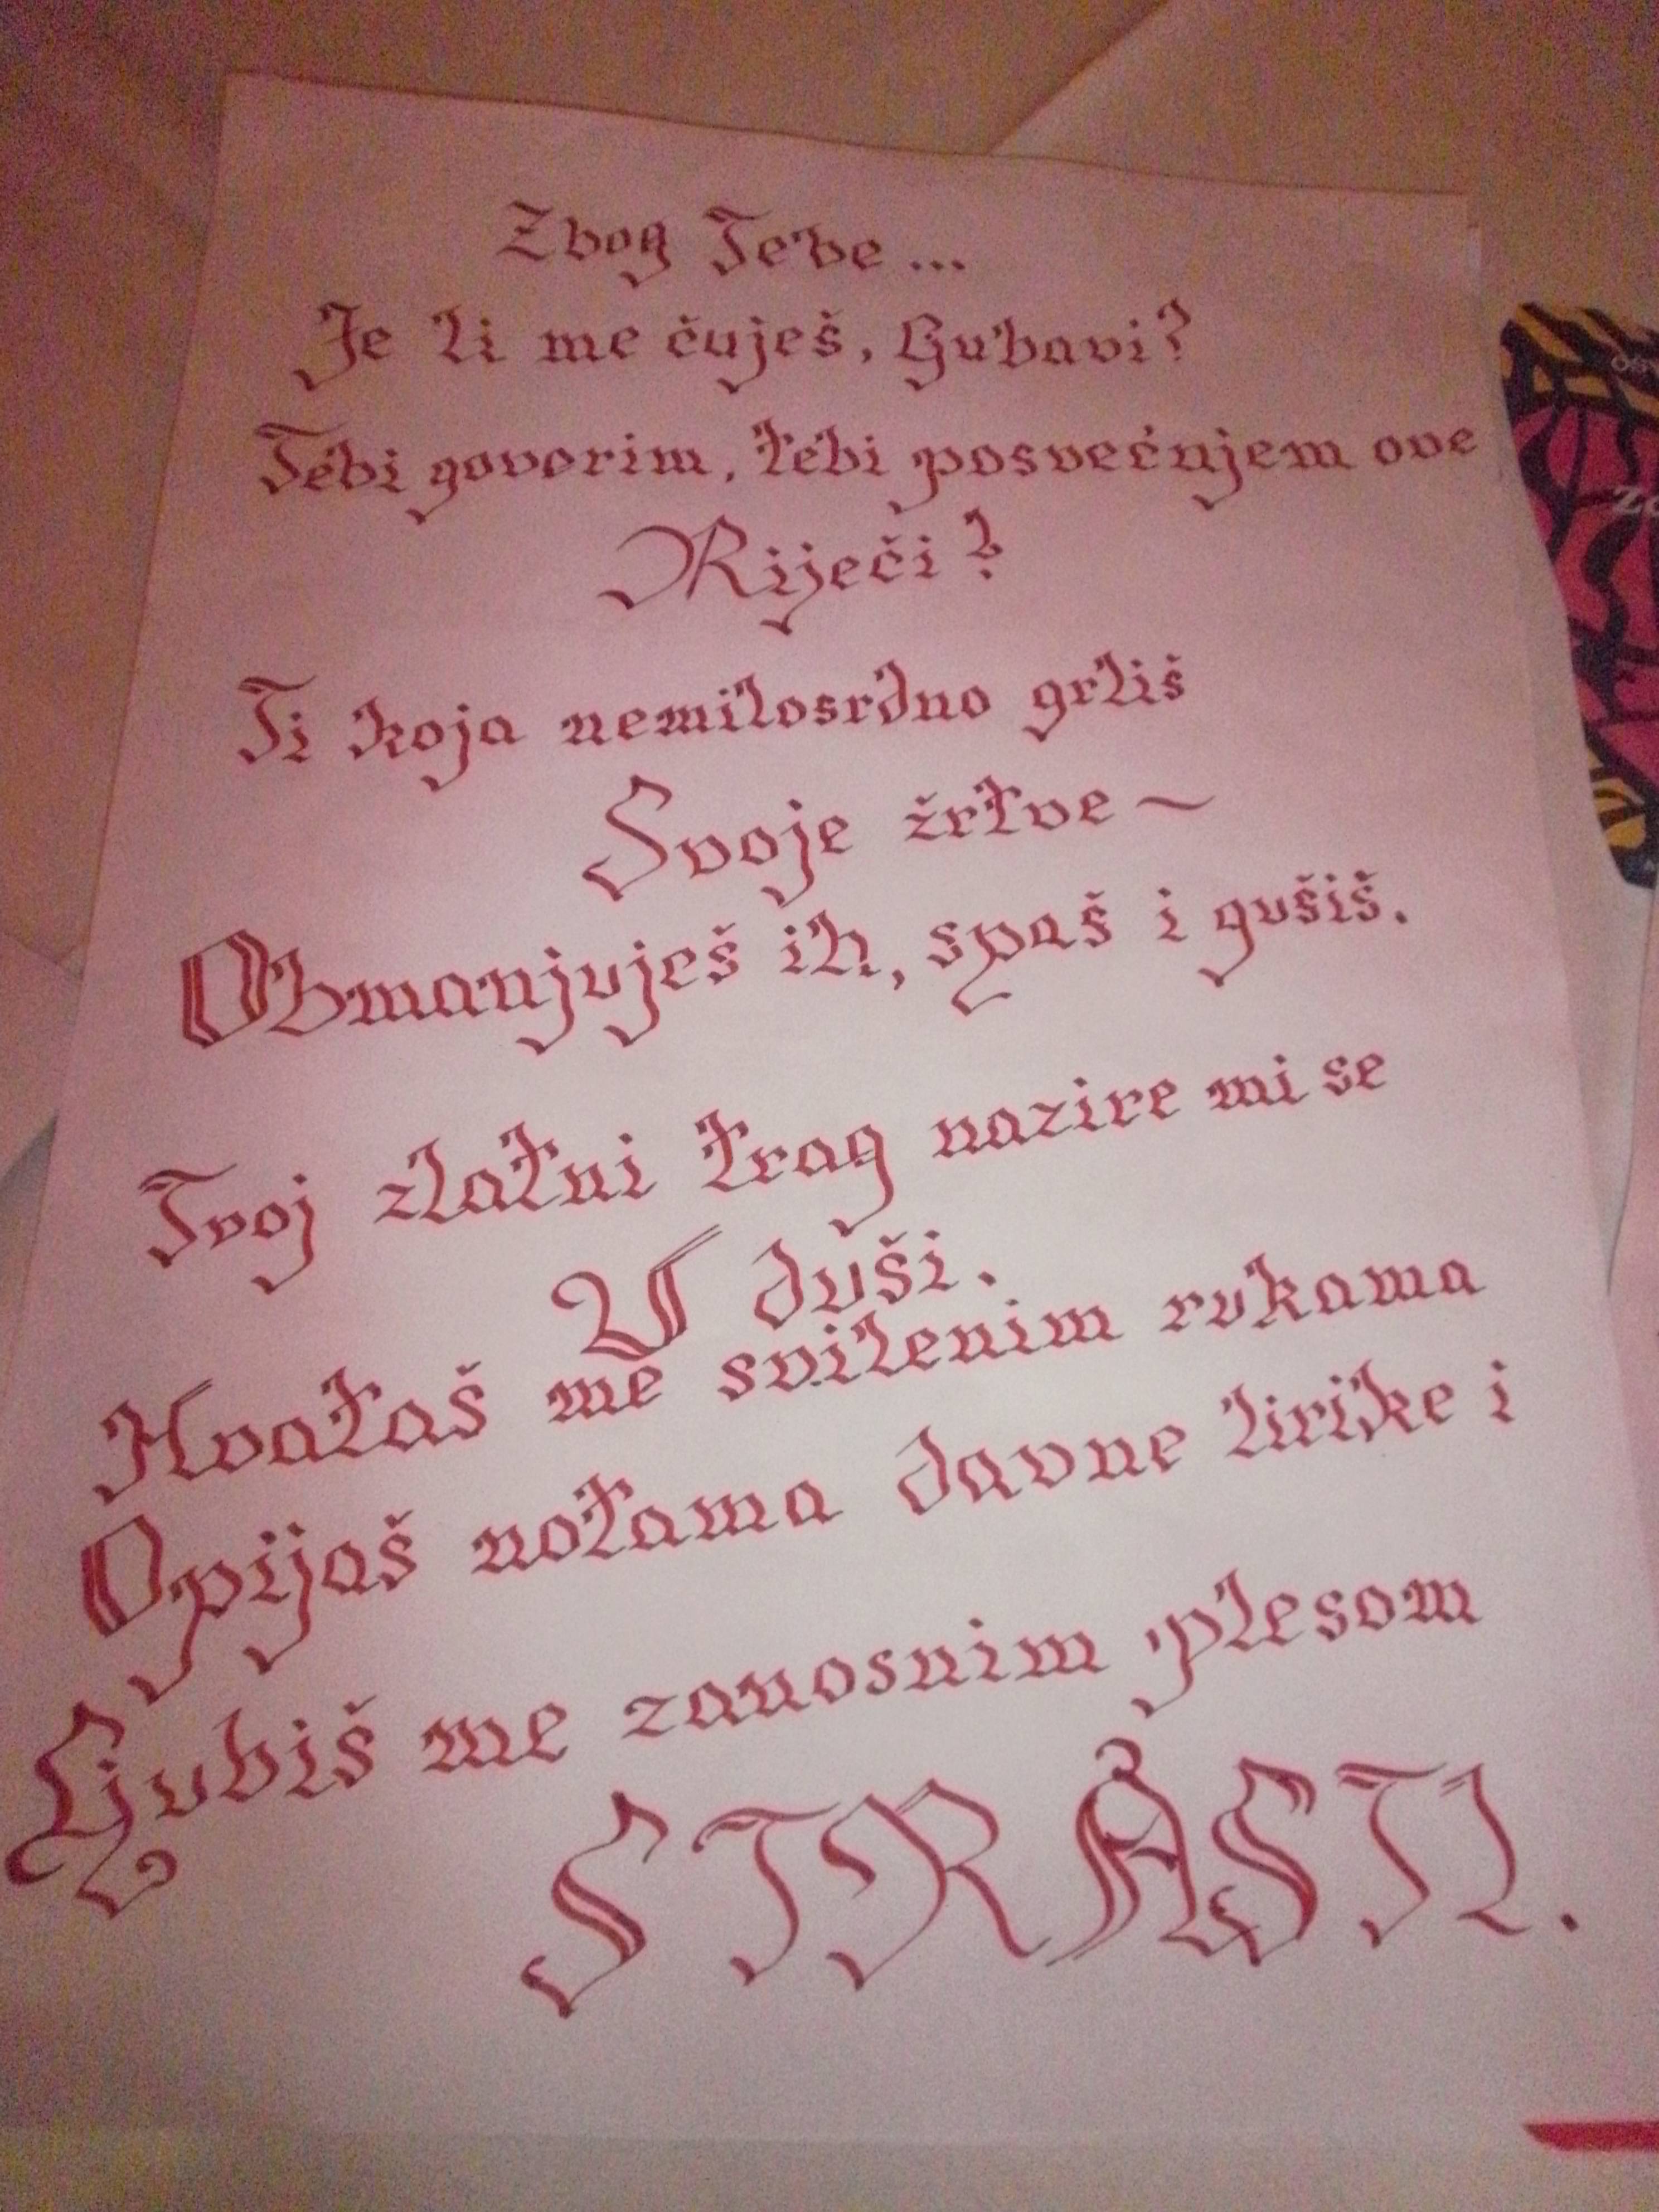 Zbog Tebe...
Je li me čuješ, Ljubavi?
Tebi govorim, tebi posvećujem ove
Riječi?
Ti koja nemilosrdno grliš
Svoje žrtve ~
Obmanjuješ ih, spaš i gušiš.
Tvoj zlatni trag nazire mi se
U duši.
Hvataš me svilenim rukama
Opijaš notama davne lirike i
Ljubiš me zanosnim plesom
STRASTI.